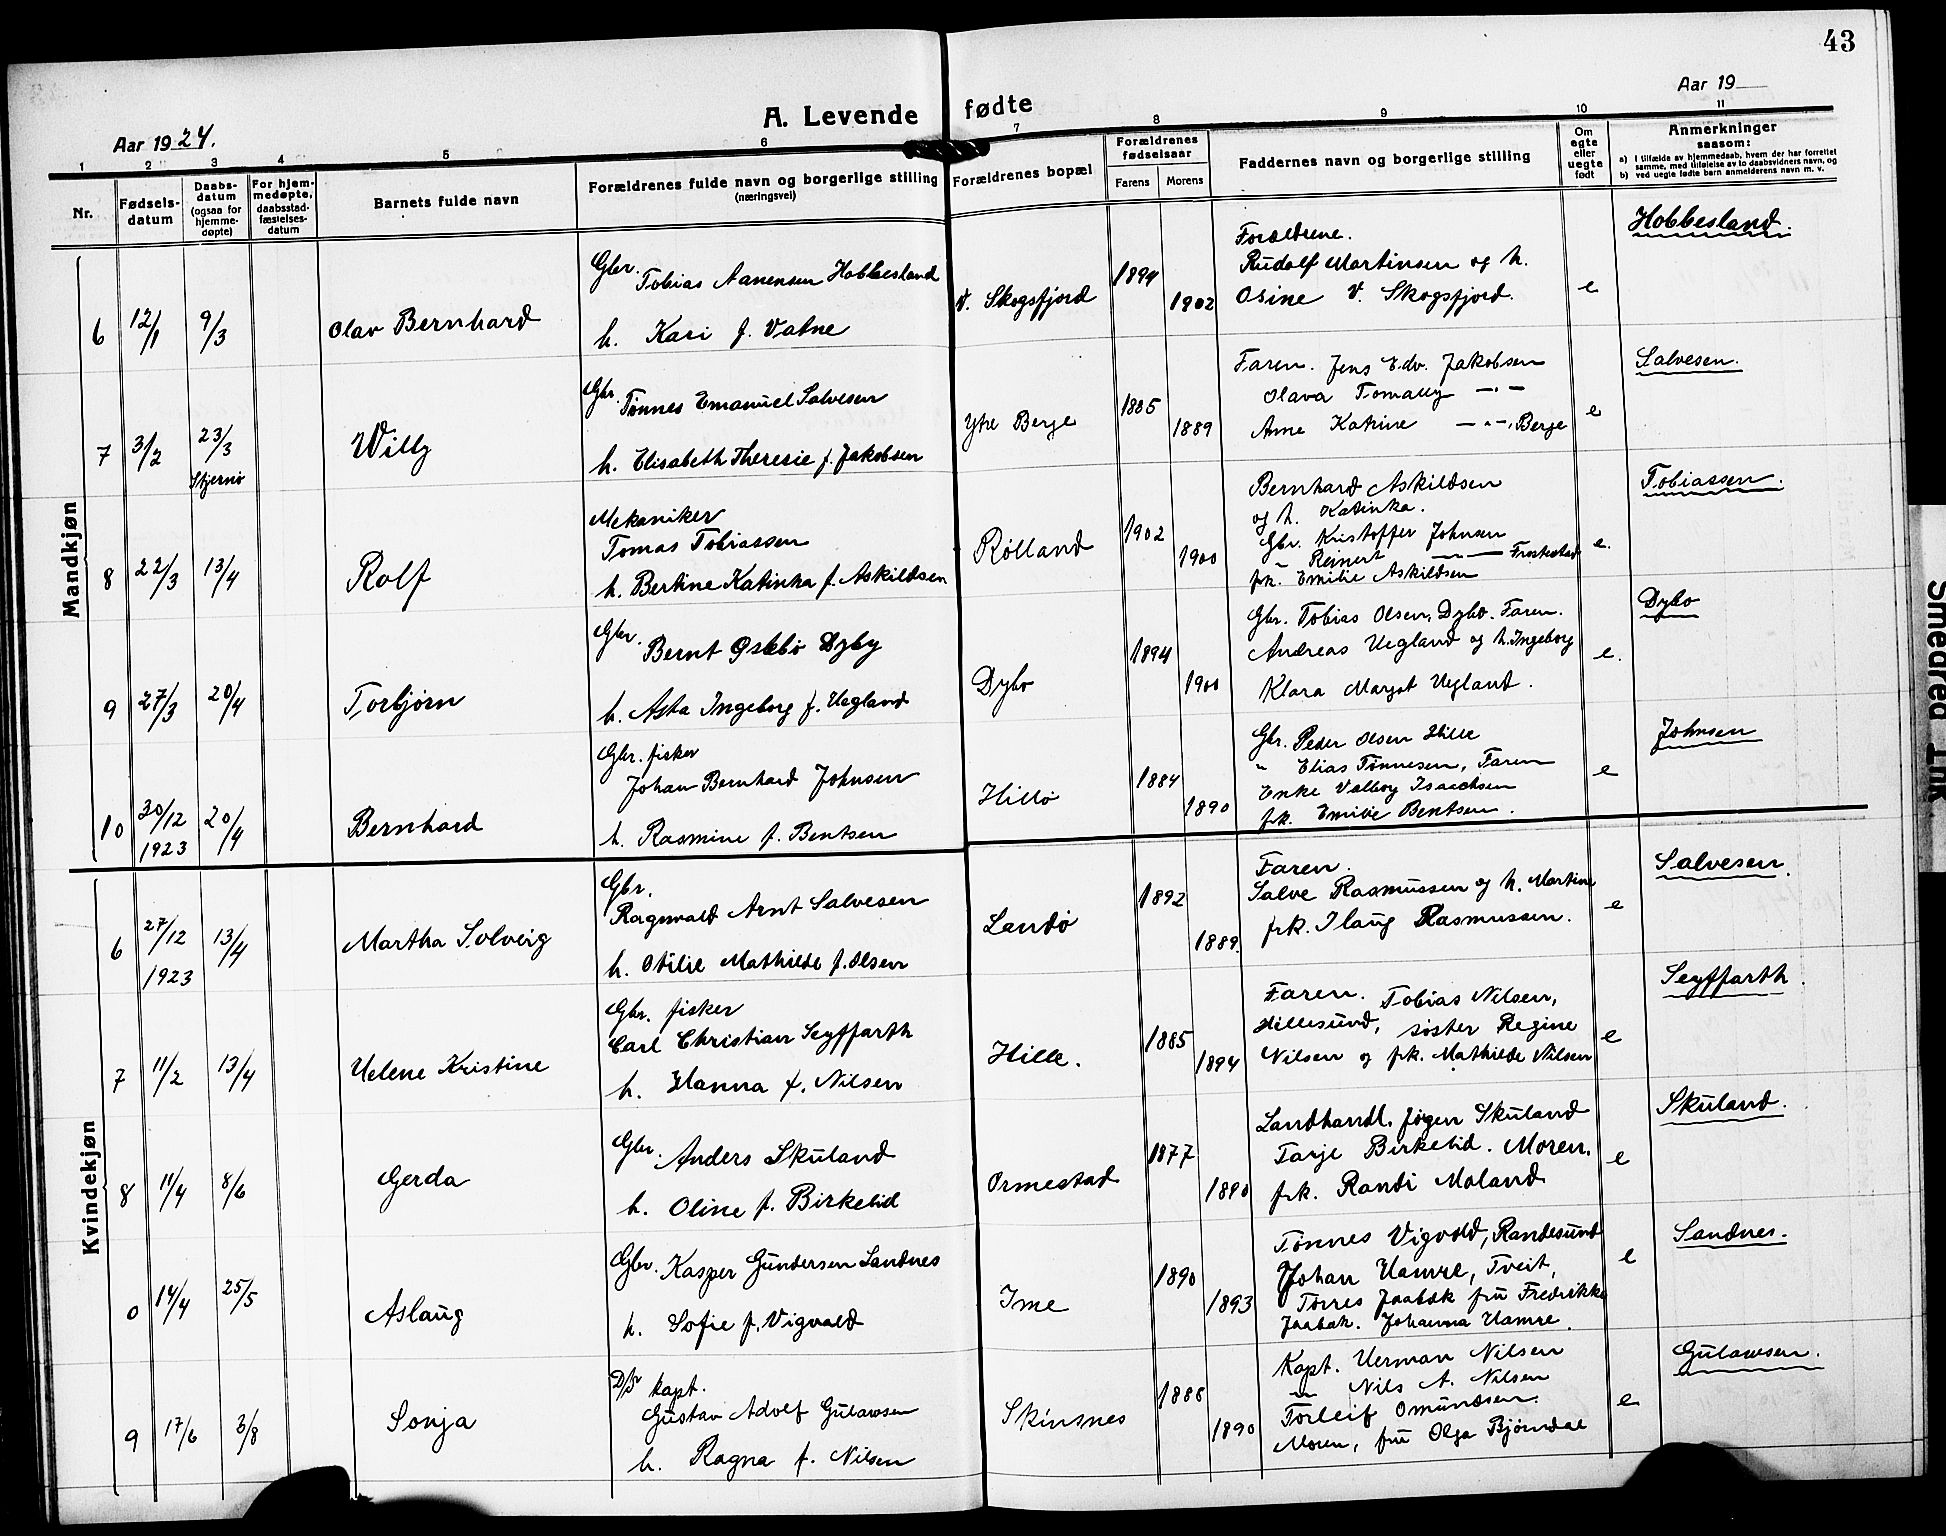 43
A. Levende fødte
Aar 1924.
Aar 19
1 2 3 4 5 6 7 8 9 10 11
Nr.
Fødsels-
datum
Daabs-
datum
(ogsaa for
hjemme-
døpte)
For hjem-
medøpte,
daabsstad-
fæstelses-
datum
Barnets fulde navn
Forældrenes fulde navn og borgerlige stilling
(næringsvei)
Forældrenes bopæl
Forældrenes
fødselsaar
Farens Morens
Faddernes navn og borgerlige stilling
Om
egte
eller
uegte
født
Anmerkninger
saasom:
a) I tilfælde av hjemmedaab, hvem der har forrettet
samme, med tilføielse av to daabsvidners navn, og
b) ved uegte fødte barn anmelderens navn m. v.
Mandkjøn
6 12/1 9/3 Olav Bernhard
Gbr. Tobias Aanensen Hobbesland
h. Kari f. Vatne
V. Skogsfjord 1894 1902
Forældrene.
Rudolf Martinsen og h.
Osine V. Skogsfjord.
e Hobbesland.
7 3/2 23/3 Willy
Skjernø
Gbr. Tønnes Emanuel Salvesen
h. Elisabeth Theresie f. Jakobsen
Ytre Berge 1885 1889
Faren. Jens Edv. Jakobsen
Olava Tomally —"—
Anne Katrine —"—, Berge
e Salvesen.
8 22/3 13/4 Rolf
Mekaniker
Tomas Tobiassen
h. Bertine Katinka f. Askildsen
Rølland 1902 1900
Bernhard Askildsen
og h. Katinka.
Gbr. Kristoffer Johnsen
" Reinert —"— Frostestad
frk. Emilie Askildsen
e. Tobiassen.
9 27/3 20/4 Torbjørn
Gbr. Bernt Osebø Dyby
h. Asta Ingeborg f. Uegland
Dybo 1894 1900
Gbr. Tobias Olsen, Dybo. Faren.
Andreas Uegland og h. Ingeborg
Klara Margot Uegland.
e. Dybo
10 30/12 1923 20/4 Bernhard
Gbr. fisker
Johan Bernhard Johnsen
h. Rasmine f. Bentsen
Hillø 1884 1890
Gbr. Peder Olsen Hille
" Elias Tønnesen, Faren
Enke Valborg Isaachsen
frk. Emilie Bentsen.
e Johnsen
Kvindekjøn
6 27/12 1923 13/4 Martha Solveig
Gbr.
Ragnvald Arnt Salvesen
h. Otilie Mathilde f. Olsen
Landø 1892 1889.
Faren.
Salve Rasmussen og h. Martine
frk. Ilaug Rasmussen.
e Salvesen.
7 11/2 13/4 Helene Kristine
Gbr. fisker
Carl Christian Seyffarth
h. Hanna f. Nilsen
Hille. 1885 1894
Faren. Tobias Nilsen,
Hillesund, søster Regine
Nilsen og frk. Mathilde Nilsen
e Seyffarth.
8 11/4 8/6 Gerda
Gbr. Anders Skuland
h. Oline f. Birkelid
Ormestad 1877 1890
Landhandl. Jørgen Skuland
Tarje Birkelid. Moren.
frk. Randi Moland
e Skuland.
0 14/4 25/5 Aslaug
Gbr. Kasper Gundersen Sandnes
h. Sofie f. Vigvald
Ime 1890 1893
Tønnes Vigvald, Randesund
Johan Hamre, Tveit,
Torres Jaabæk fru Fredrikke
Jaabæk. Johanna Hamre.
e Sandnes.
9 17/6 3/8 Sonja
D/S kapt.
Gustav Adolf Gulawsen
h. Ragna f. Nilsen
Skinsnes 1888 1890
Kapt. Herman Nilsen
" Nils A. Nilsen
Torleif Omundsen.
Moren, fru Olga Bjørndal
e Gulawsen.
Smedred Ink.